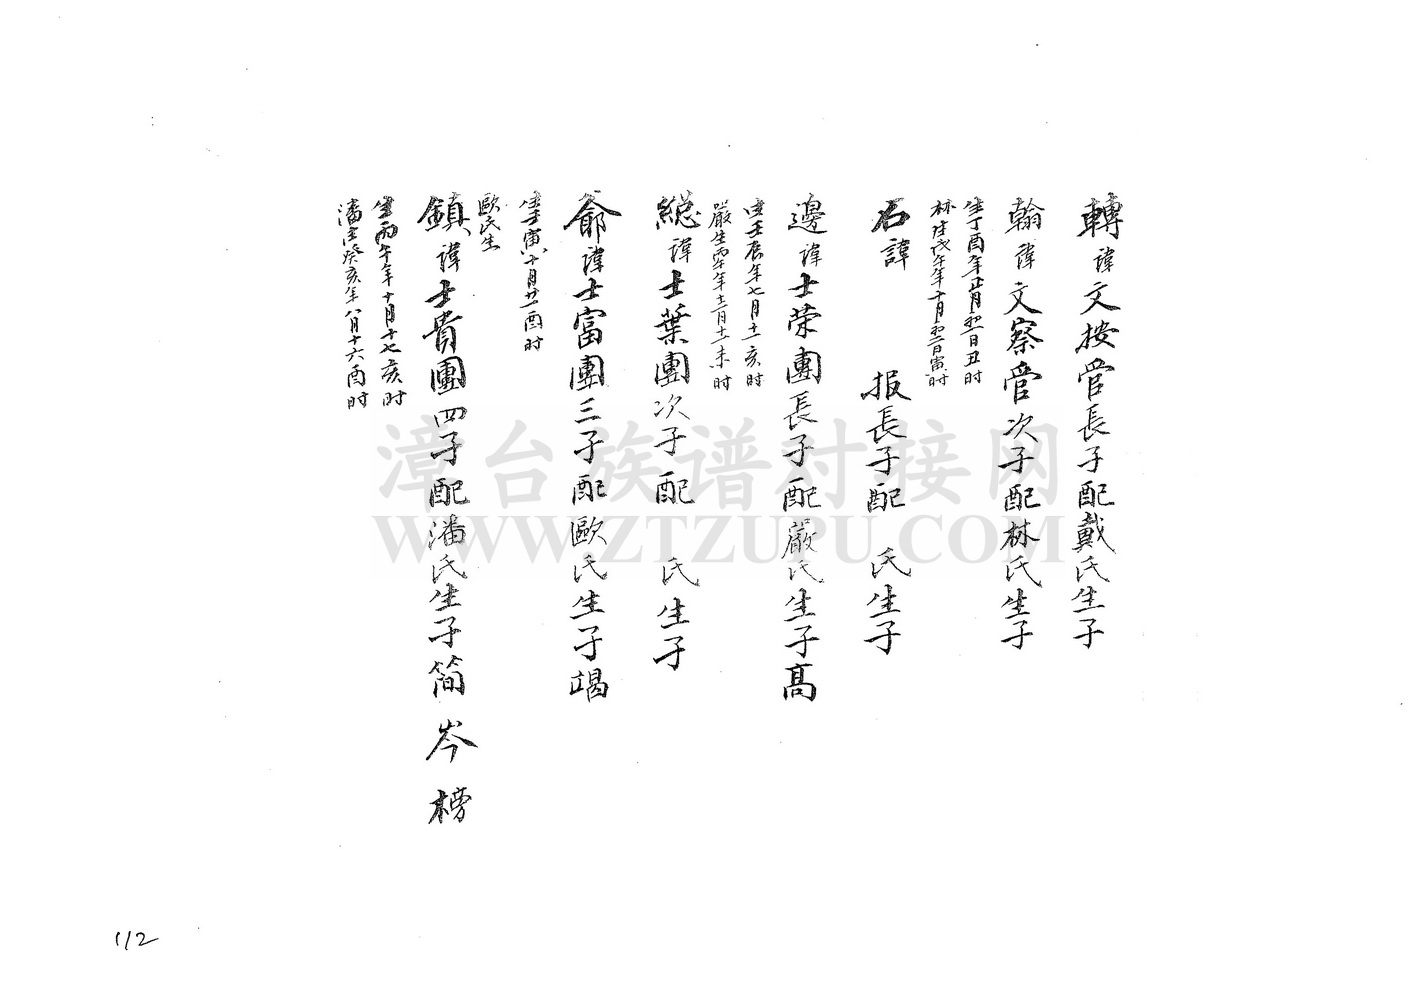 轉諱文按管長子配戴氏生子
翰諱文察管次子配林氏生子
生丁酉年正月初一日丑时
林生戊午年十月初二日寅时
名諱 报長子配 氏生子
邊諱士荣團長子配嚴氏生子髙
生壬辰年七月十一亥时
嚴生丙午年十二月十一未时
総諱士葉團次子配 氏生子
爺諱士富團三子配歐氏生子竭
生壬寅八十月廿一酉时
歐氏生
鎮諱士貴團四子配潘氏生子简 岑 榜
生丙午年十月十七亥时
潘生癸亥年八月十六酉时
漳台族谱对接网
WWW.ZTZUPU.COM
112